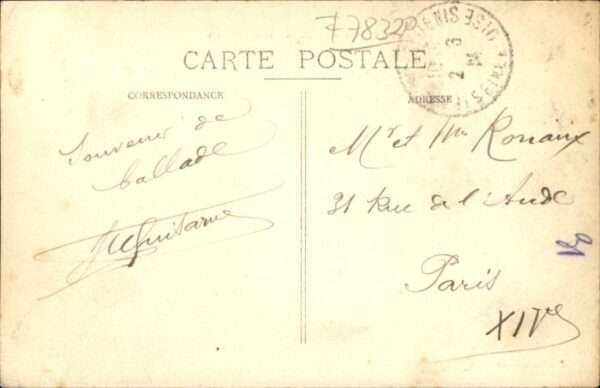 778320
CARTE POSTALE
CORRESPONDANCE
ADRESSE
Souvenir de
ballade
Mr et Mme Ronaix
31 Rue de l'Aude
Paris
XIVe